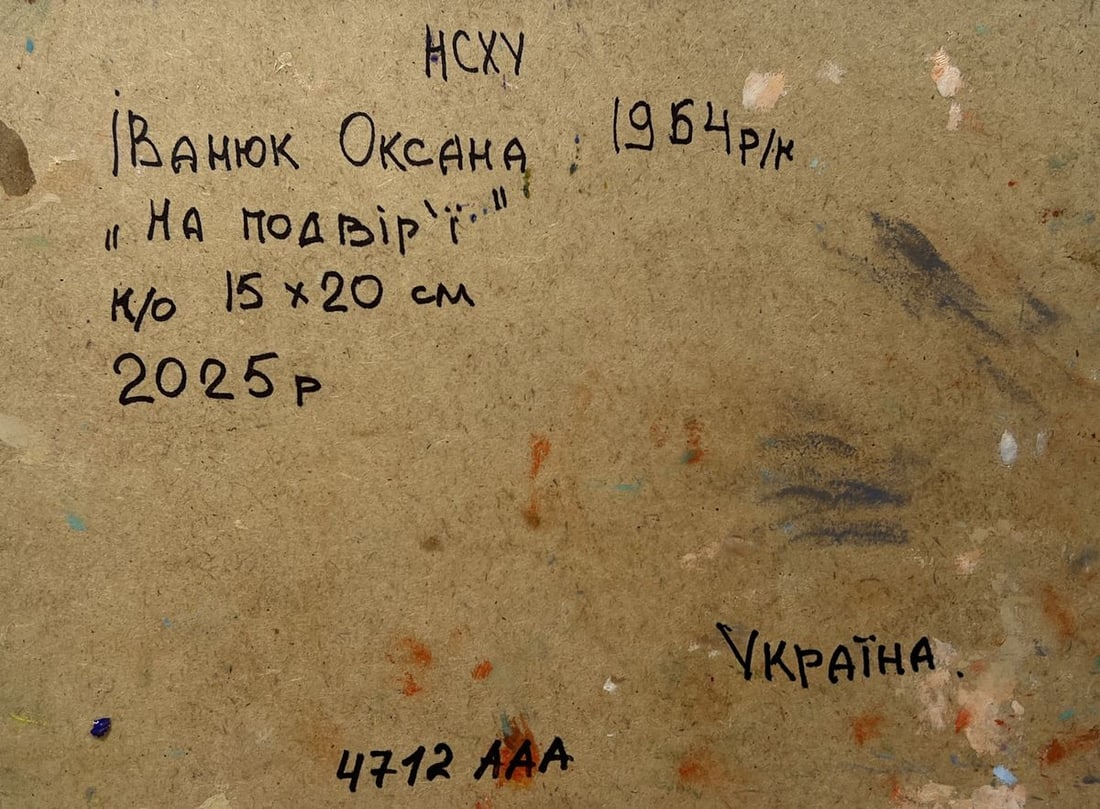 НСХУ
Іванюк Оксана 1964 р/н
„На подвір'ї"
к/о 15 x 20 см
2025 р
Україна.
4712 ААА